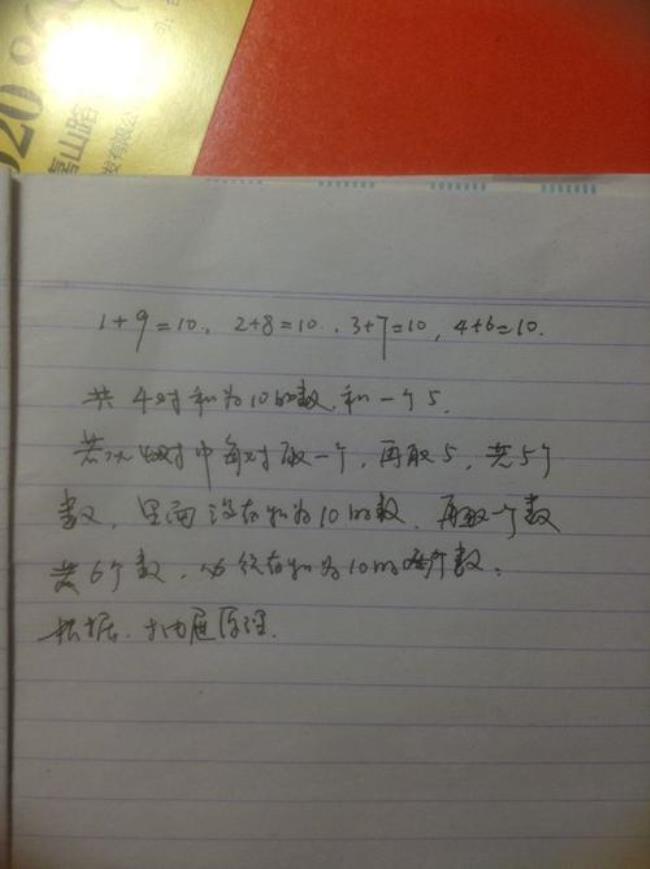 020
嵩山路
发有限公
1+9=10. 2+8=10. 3+7=10, 4+6=10.
共4对和为10的数,和一个5.
若从4对中每对取一个,再取5,共5个
数,里面没有和为10的数.再取一个数
共6个数,必须有和为10的两个数.
根据.抽屉原理.